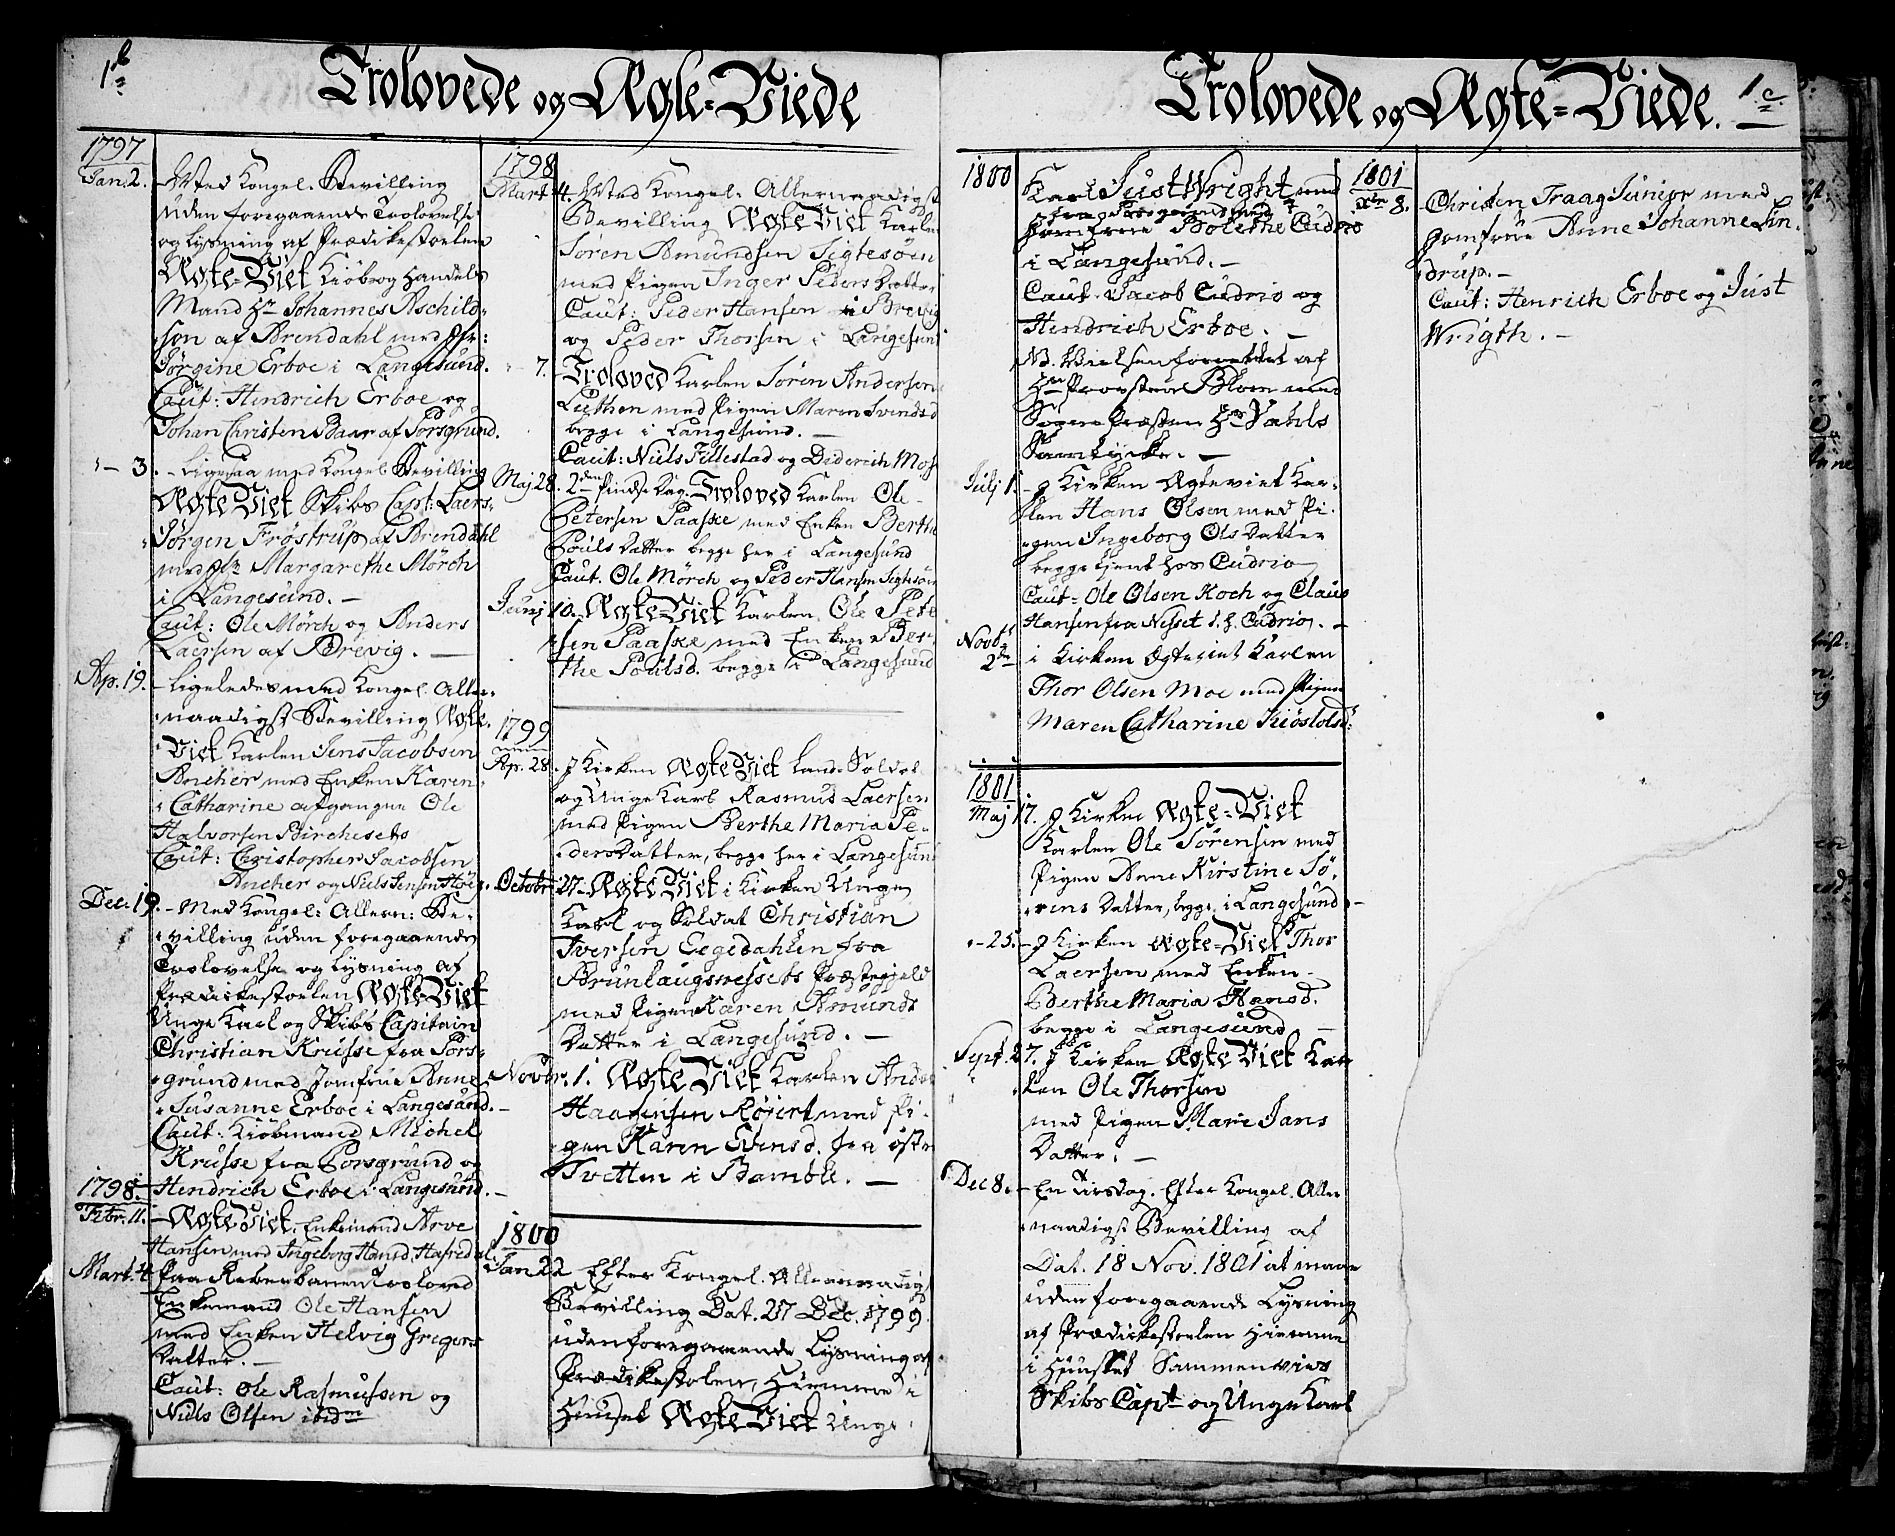 1b
Trolovede og Ægte-Viede
1797
Jan. 2. Med Kongel. Bevilling
uden foregaaende Trolovelse
og Lysning af Prædikestoelen
Ægte-Viet Kiøb og Handels
Mand Hr Johannes Aschild-
søn af Arendahl med Jfr:
Jørgine Erboe i Langesund.
Caut: Hendrich Erboe og
Johan Christen Baar af Porsgrund.
- 3. - Ligesaa med Kongel Bevilling
Ægte Viet Skibs Capt: Laers
Jørgen Frøstrup af Arendahl
med Margarethe Mörch
i Langesund. -
Caut: Ole Mörch og Anders
Laersen af Brevig. -
Ap. 19. - Ligeledes med Kongel. Aller-
naadigst Bevilling Ægte-
Viet Karlen Jens Jacobsen
Ancher med Enken Karen
Catharine afgangne Ole
Halvorsen Birchesets
Caut: Christopher Jacobsen
Ancher og Niels Jensen
Dec. 19. - Med Kongel: Allern: Be-
villing uden foregaaende
Trolovelse og Lysning af
Prædikestoelen Ægte Viet
Unge Karl og Skibs Capitain
Christian Krusse fra Pors-
grund med Jomfrue Anne
Susanne Erboe i Langesund. -
Caut: Kiöbmand Michel
Krusse fra Porsgrund og
Hendrich Erboe i Langesund. -
1798.
Febr. 11. - Ægte Viet. Enkemand Arve
Hansen med Ingeborg Hansd.
Mart. 4 Paa Reberbanen Troloved
Enkemand Ole Hansen
med Enken Helvig Gregers
Datter. -
Caut: Ole Rasmussen og
Niels Olsen ibidm
1798
Mart. 4. Med Kongel. Allernaadigst
Bevilling Ægte Viet Karlen
Søren Amundsen Sigtesøen
med Pigen Inger Peders Datter
Caut: Peder Hansen i Brevig
og Peder Thorsen i Langesund
- 7. Troloved Karlen Sören Andersen
Luthen med Pigen Maren Svendsd
begge i Langesund. -
Caut: Niels Fillestad og Diderich
Maj 28. 2den Pindse Dag. Troloved Karlen Ole
Petersen Paaske med Enken Berthe
Pouls Datter begge her i Langesund
Caut. Ole Mörch og Peder Hansen Sigtesøen
Junj 10. Ægte-Viet Karlen Ole Peter
sen Paaske med Enken Ber-
the Poulsd. begge i Langesund
1799
Ap. 28. J Kirken Ægte Viet Land-Soldat
og Unge Karl Rasmus Laersen
med Pigen Berthe Maria Pe-
dersdatter, begge her i Langesund
Octobr 27. - Ægte Viet i Kirken Unge
Karl og Soldat Christian
Iversen Eegedahlen fra
Brunlaugnessets Præstegield
med Pigen Karen Amunds
Datter i Langesund. -
Novbr. 1. Ægte Viet Karlen Anders
Haagensen Röjert med Pi-
gen Karen Evensd. fra öst
Tvetten i Bamble. -
1800
Jan 22 Efter Kongel. Allernaadigst
Bevilling Dat. 27 Dec. 1799.
uden foregaaende Lysning af
Prædikestolen, Hiemme i
Huuset Ægte Viet Unge
1c.
Trolovede og Ægte-Viede.
1800
Karl Just Wright med
Jomfrue Bolethe Cudrio
i Langesund. -
Caut. Jacob Cudrio og
Hendrich Erboe. -
NB. Vielsen forrettet af
Hr Provsten Blom med
Sogne Præsten Hr Vahls
Samtÿcke. -
Julj 1. - J Kirken Ægteviet Kar-
len Hans Olsen med Pi-
gen Ingeborg Ols Datter
begge tient hos Cudrio
Caut: Ole Olsen Koch og Claus
Hansen fra Nesset i. h. Cudrio. -
Novbr
2den i Kirken Ægteviet Karlen
Thor Olsen Moe med Pigen
Maren Catharine Kiöstolsd:
1801
Maj 17. J Kirken Ægte-Viet
Karlen Ole Sörensen med
Pigen Anne Kirstine Sö-
rens Datter, begge i Langesund. -
- 25. - J Kirken Ægte-Viet Thor
Laersen med Enken
Berthe Maria Hansd.
begge i Langesund -
Sept. 27. J Kirken Ægte Viet Kar
len Ole Thorsen
med Pigen Marie Jans
Datter. -
Dec 8. - En Tirsdag. Efter Kongel. Aller
naadigst Bevilling af
Dat. 18 Nov. 1801 at maae
uden foregaaende Lysning
af Prædikestoelen Hiemme
i Huuset Sammenvies
Skibs Capt og Unge Karl
1801
Xbr 8. Christen Traag Junior med
Jomfrue Anne Johanne Lin-
drup. -
Caut: Henrich Erboe og Just
Wrigth. -